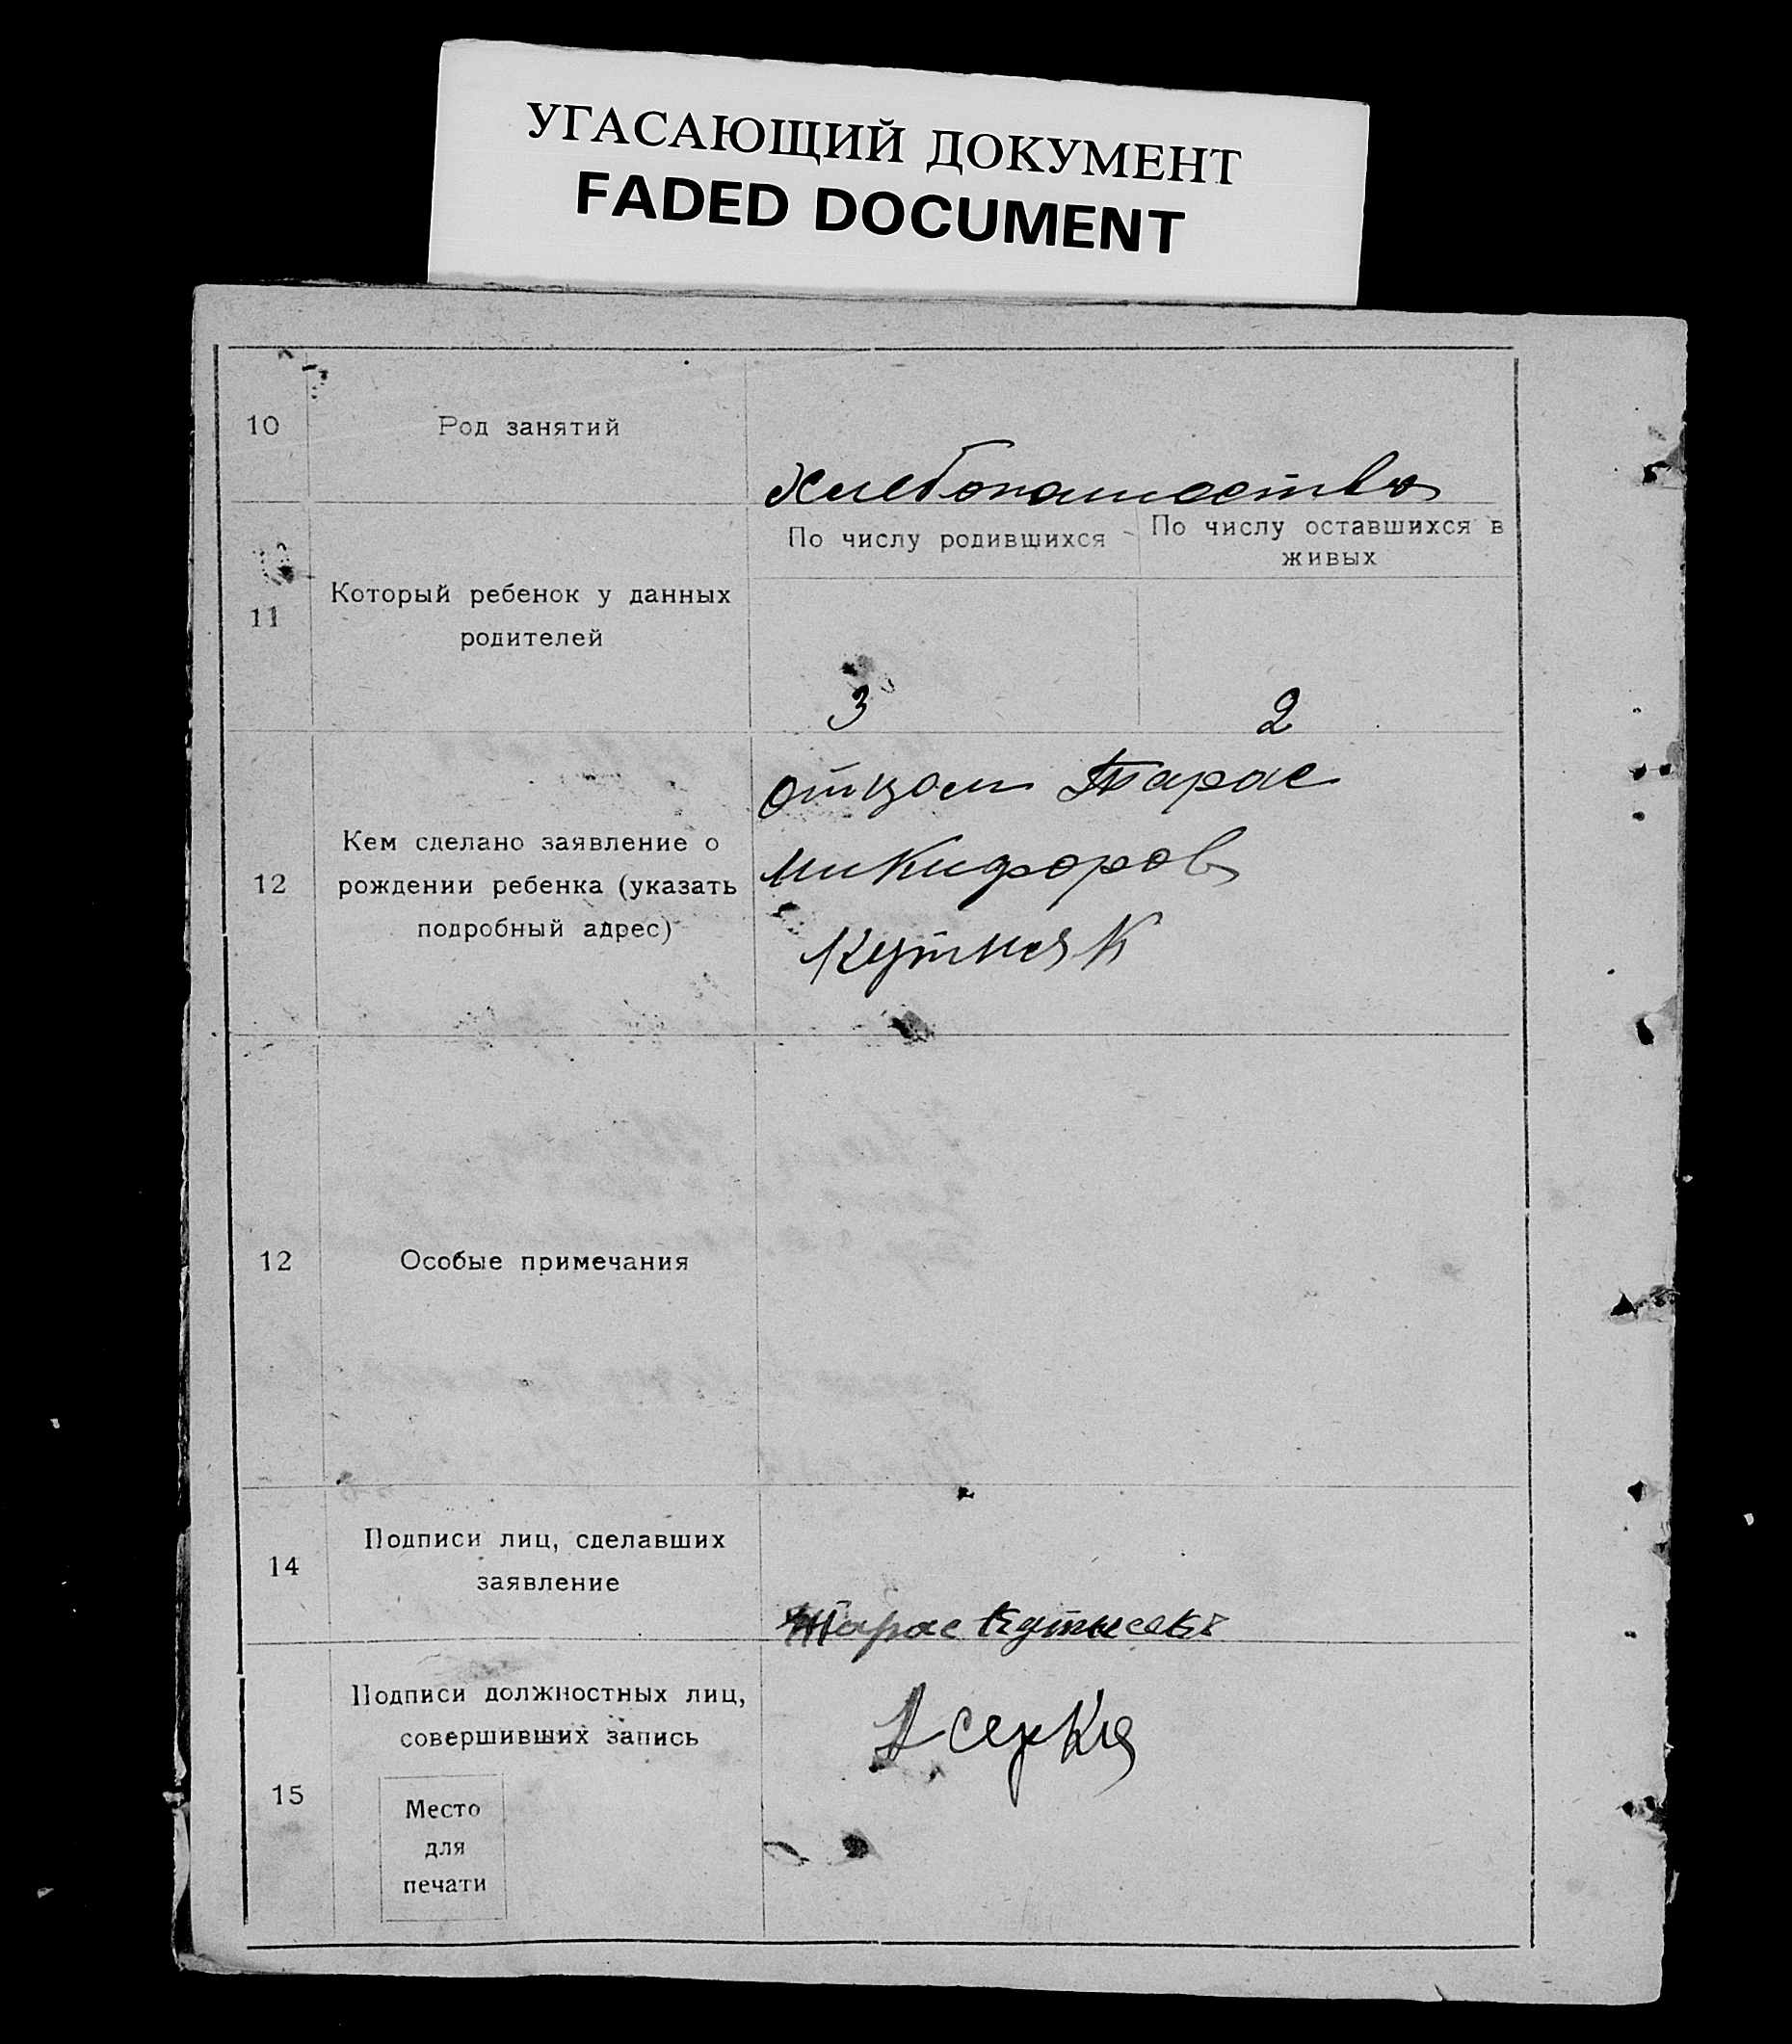 УГАСАЮЩИЙ ДОКУМЕНТ
FADED DOCUMENT
10
Род занятий
хлебопашество
11
Который ребенок у данных
родителей
По числу родившихся
По числу оставшихся в
живых
3
2
12
Кем сделано заявление о
рождении ребенка (указать
подробный адрес)
отцом Тарас
Никифоров
Кутняк
12
Особые примечания
14
Подписи лиц, сделавших
заявление
Тарас
Подписи должностных лиц,
совершивших запись
15
Место
для
печати